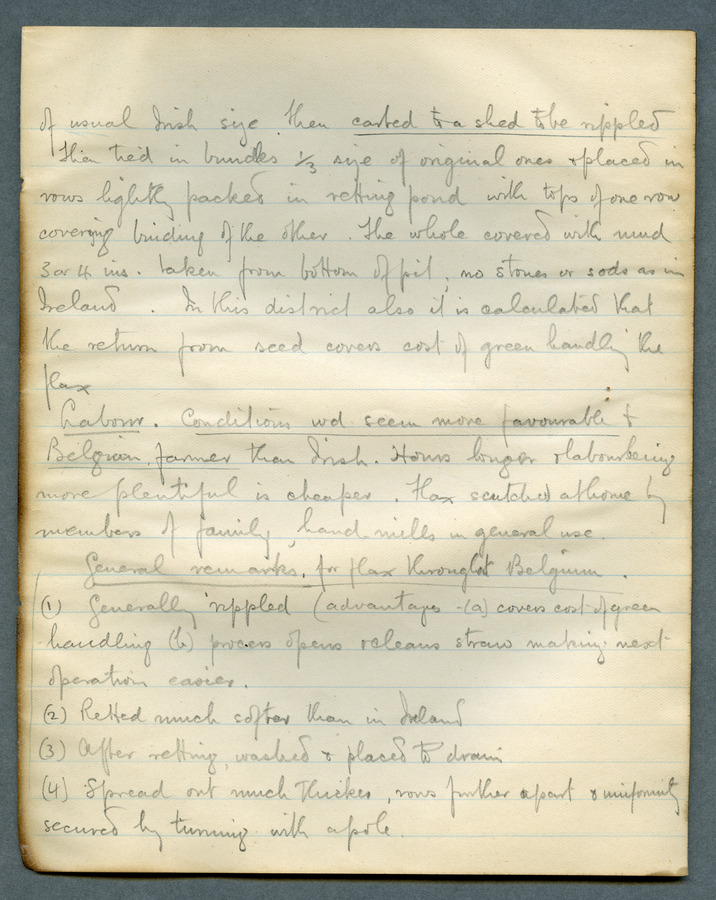 of usual Irish size. Then carted to a shed to be rippled
Then tied in bundles 1/3 size of original ones & placed in
rows lightly packed in retting pond with tops of one row
covering binding of the other. The whole covered with mud
3 or 4 ins. taken from bottom of pit, no stones or sods as in
Ireland. In this district also it is calculated that
the return from seed covers cost of green handlg the
flax
Labour. Conditions wd seem more favourable to
Belgian farmer than Irish. Hours longer & labour being
more plentiful is cheaper. Flax scutched at home by
members of family, hand mills in general use.
General remarks. for flax throughout Belgium.
(1) Generally rippled (advantages - (a) covers cost of green
handling (b) process opens & cleans straw making next
operation easier.
(2) Retted much softer than in Ireland
(3) After retting, washed & placed to drain
(4) Spread out much thicker, rows further apart & uniformity
secured by turning with a pole.